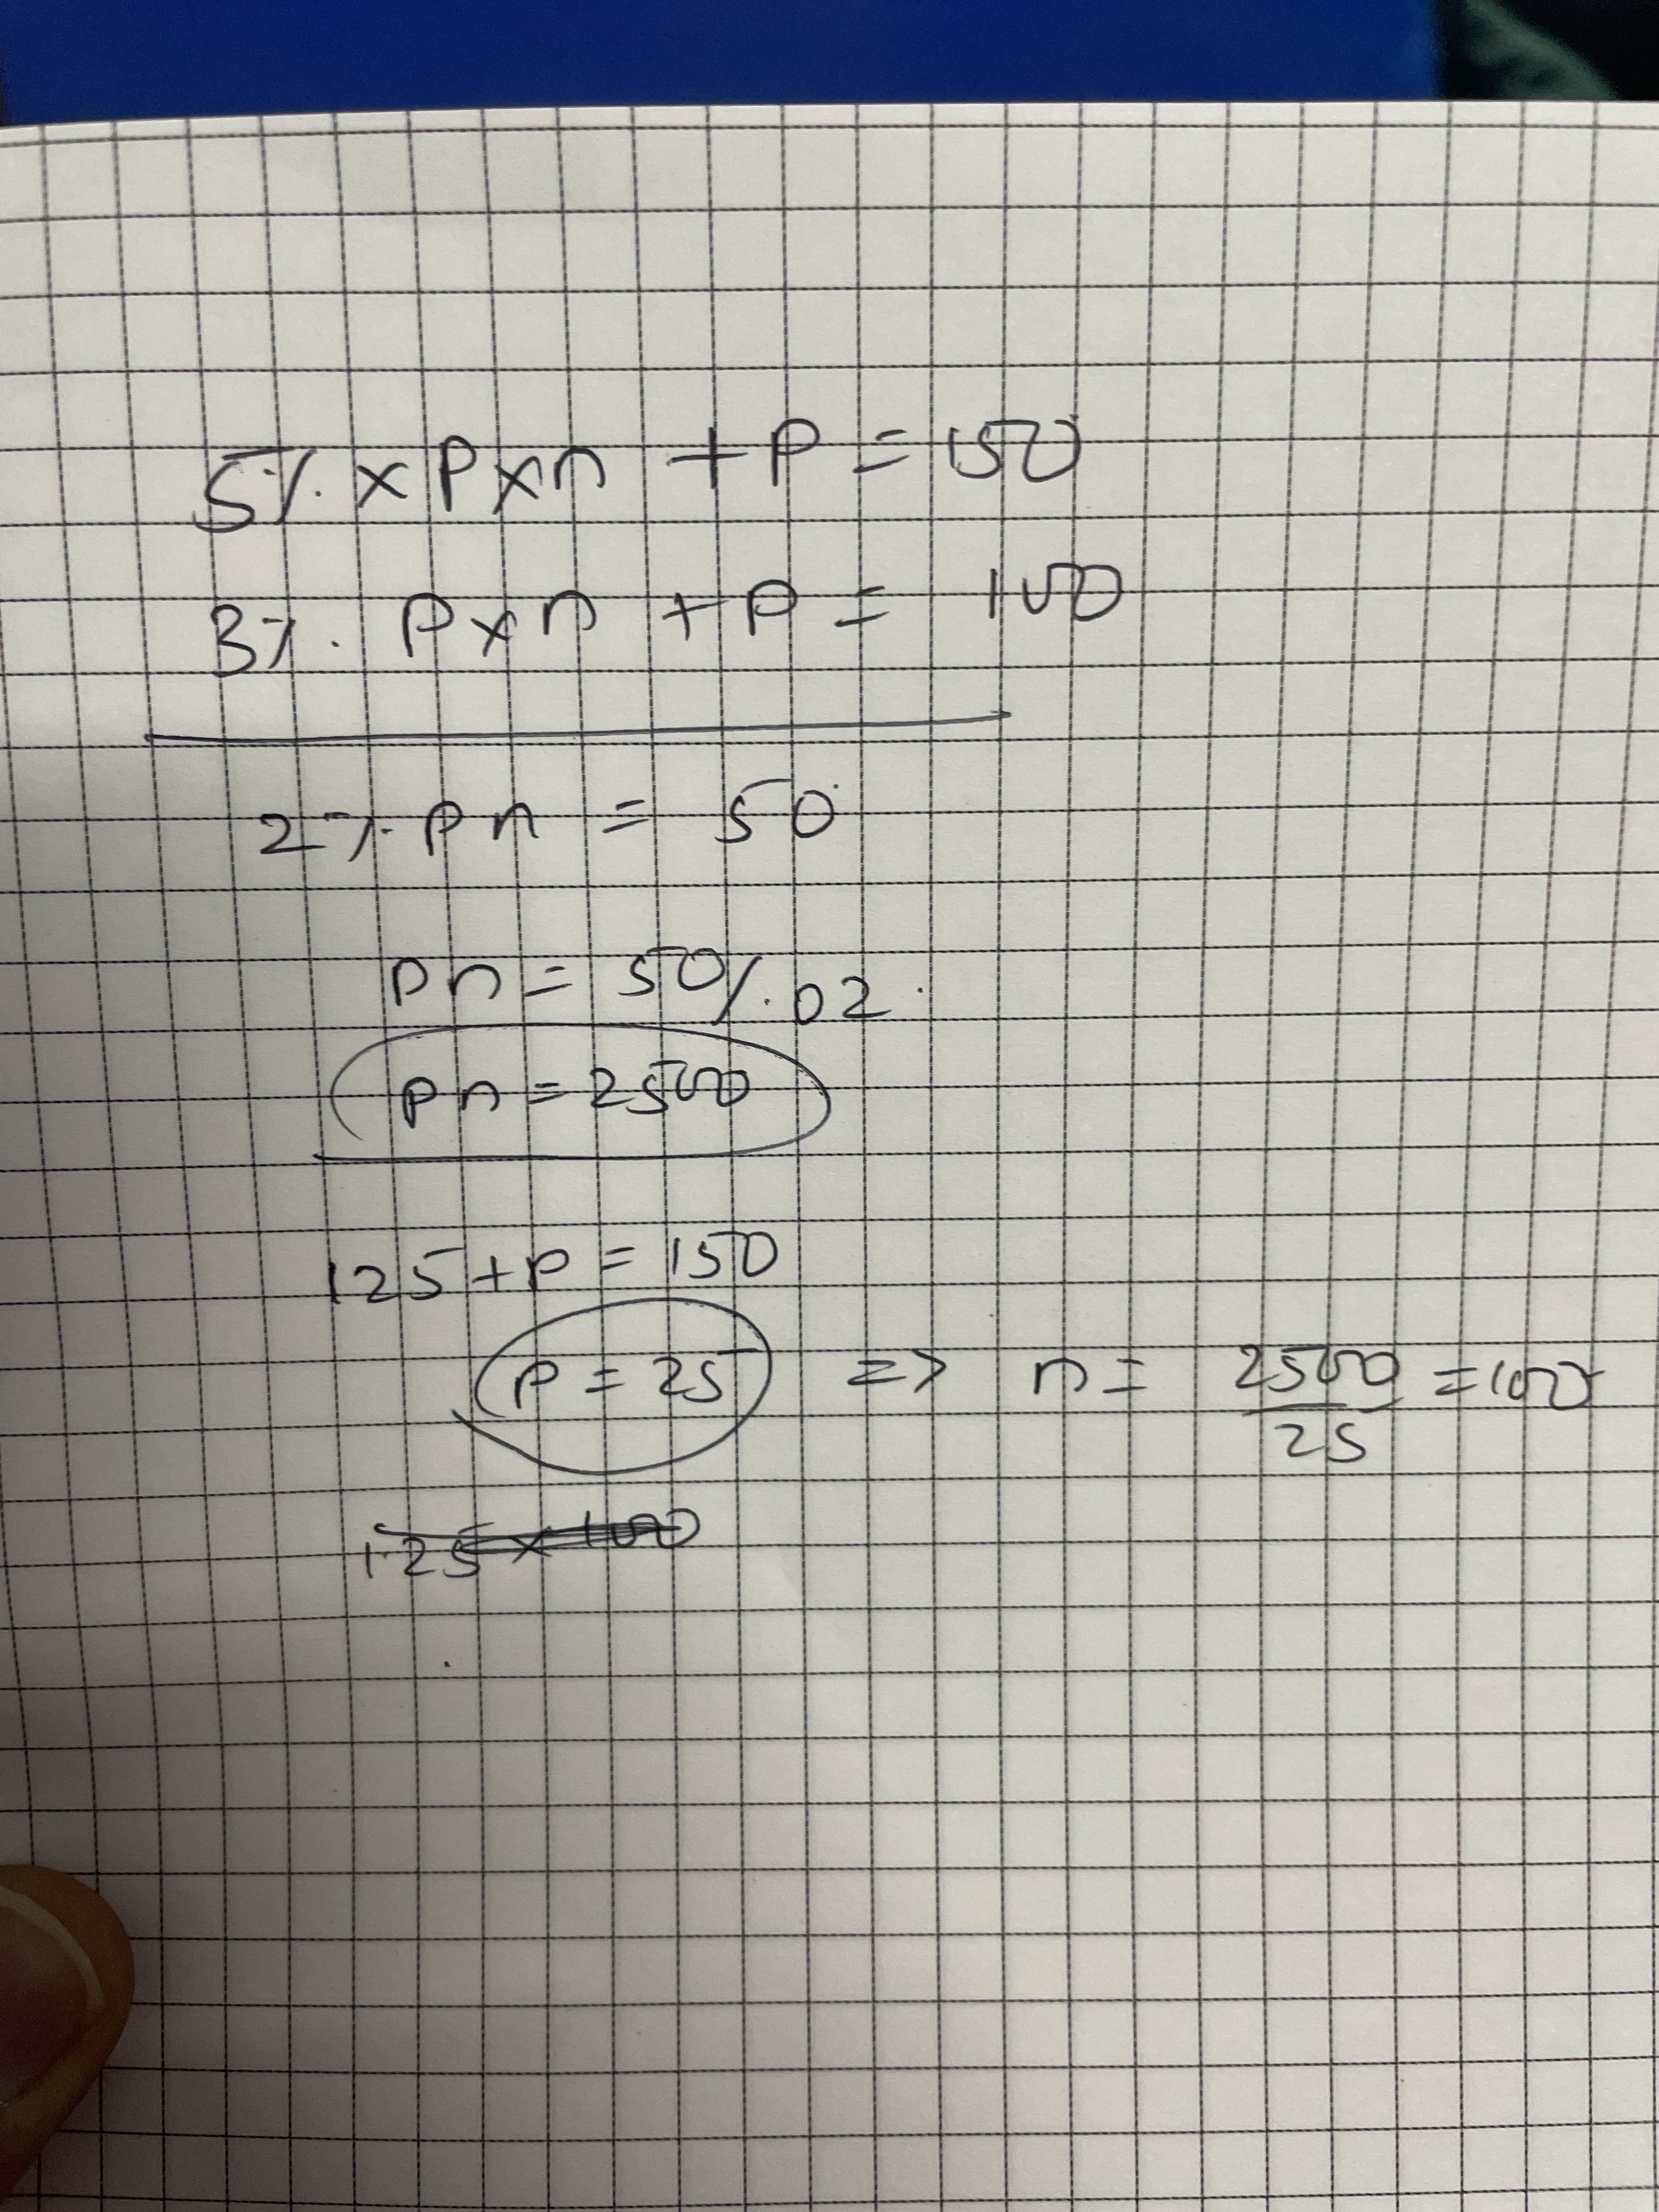 5% × P × n + P = 150
3% P × n + P = 100
2% P n = 50
P n = 50/.02
P n = 2500
125 + P = 150
P = 25 => n = 2500/25 = 100
125 × 100